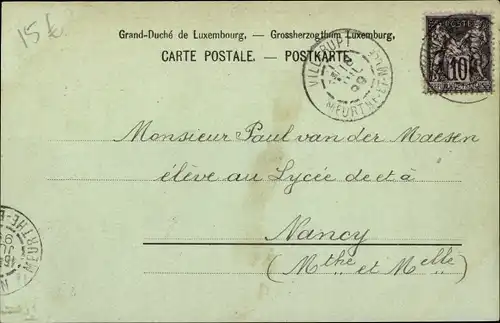 15 €
Grand-Duché de Luxembourg. — Grossherzogthum Luxemburg.
CARTE POSTALE. — POSTKARTE.
POSTE
10
VILLERUPT
99
MEURTHE-ET-MOLLE
Monsieur Paul van der Maesen
élève au Lycée de et à
Nancy
(Mthe et Melle)
MEURTHE-E